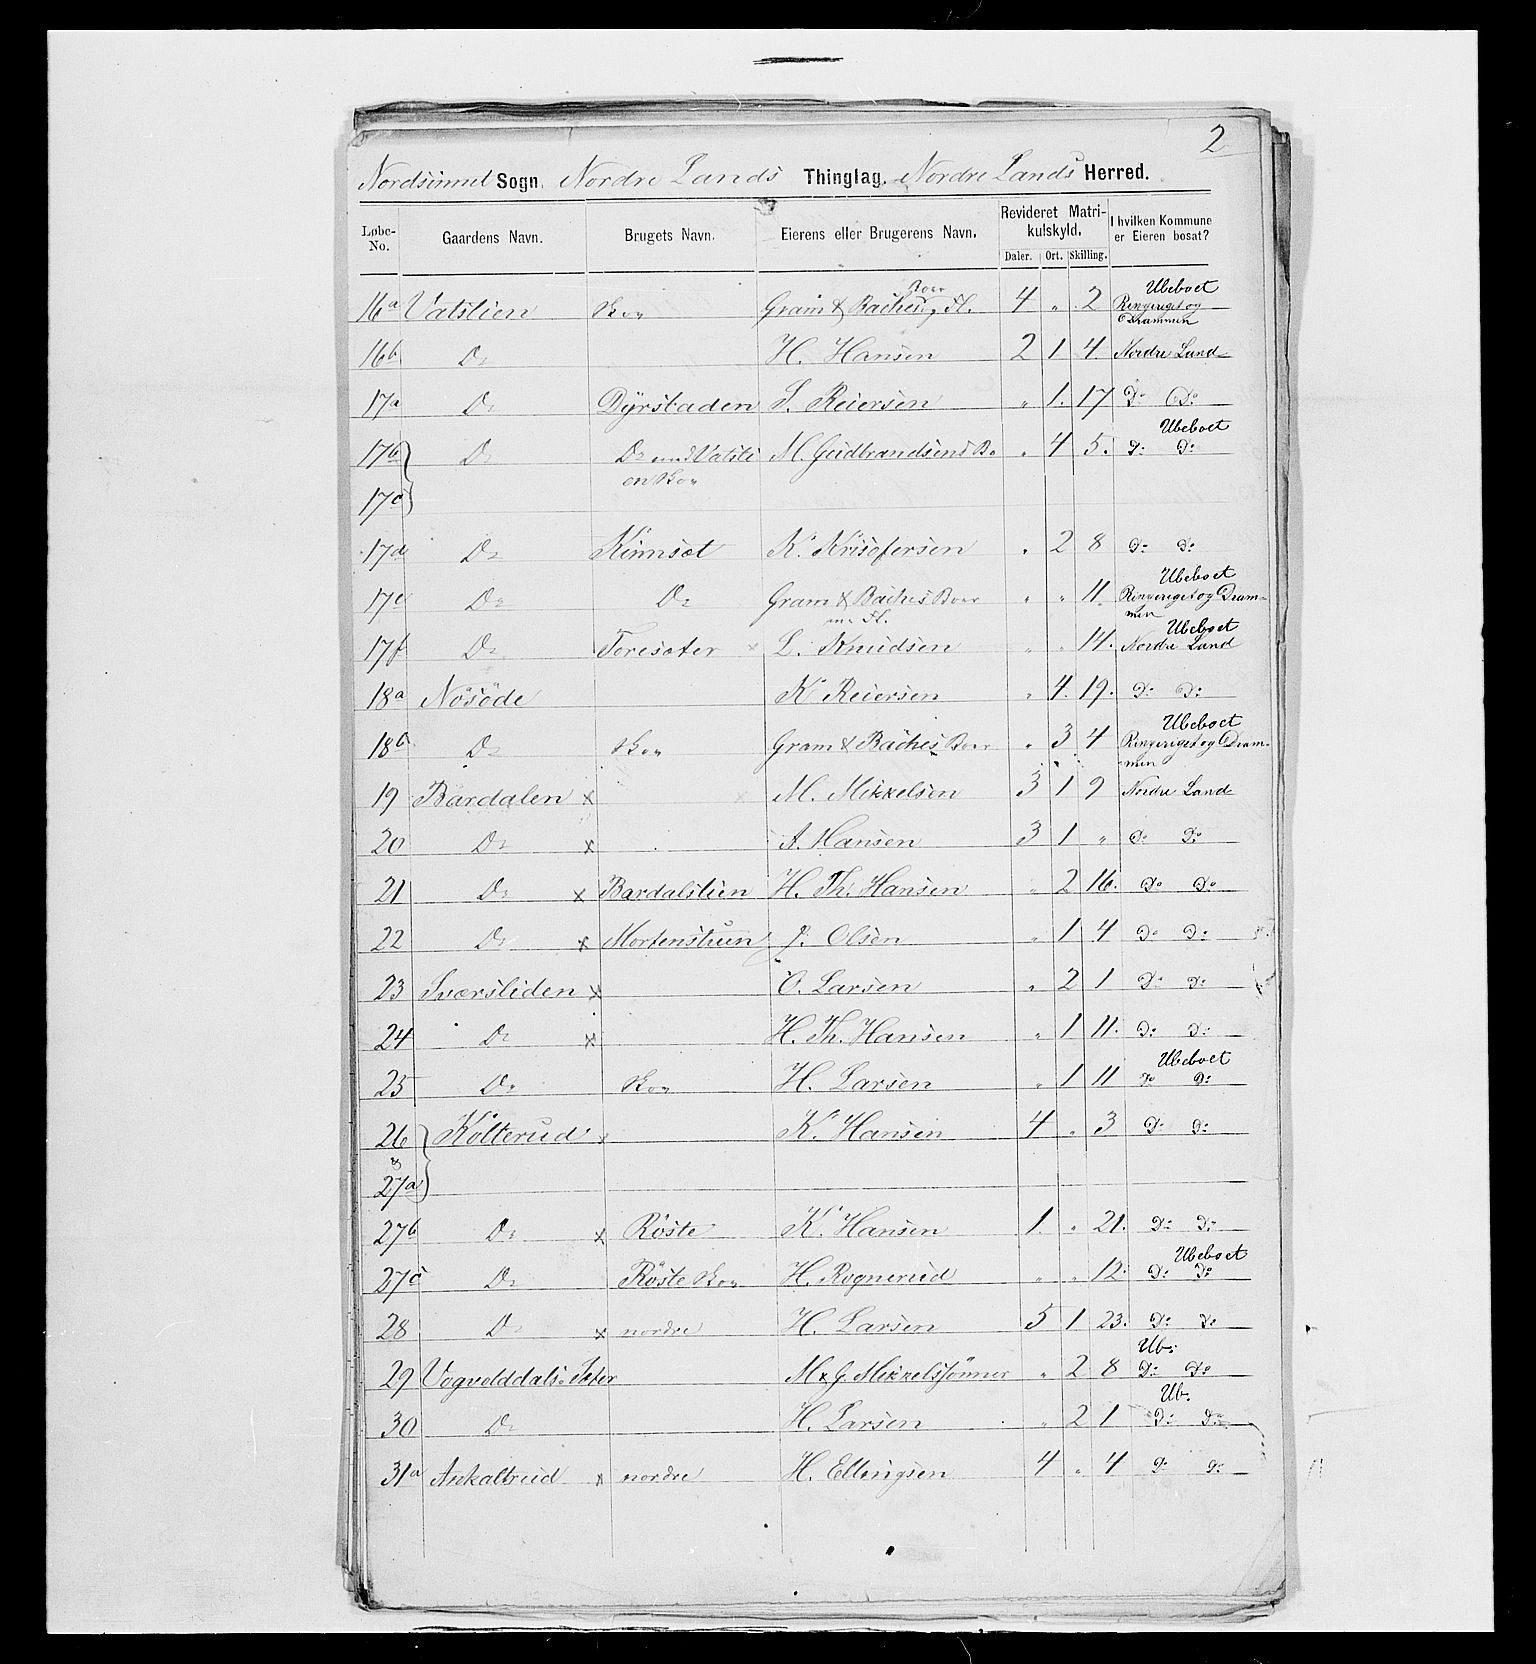 2
Nordsinnel Sogn. Nordre Lands Thinglag. Nordre Lands Herred.
Løbe-No. Gaardens Navn. Brugets Navn. Eierens eller Brugerens Navn. Revideret Matrikulskyld. Daler. Ort. Skilling. I hvilken Kommune er Eieren bosat?
16a Vatslien Skov Gram & Baches Boer og Fl. 4 " 2 Ubeboet Ringeriget og Drammen
16b Do H. Hansen 2 1 4 Nordre Land
17a Do Dyrstaden S. Reiersen " 1. 17 Do Do
17b Do Do med Vatsli M. Gudbrandsens Bo " 4 5. Ubeboet Do Do
17c en Skov
17d Do Kinnset K. Krisofersen " 2 8 Do Do
17e Do Do Gram & Baches Boer m. Fl. " " 11 Ubeboet Ringeriget og Drammen
17f Do Toresæter x L. Knudsen " " 14. Ubeboet Nordre Land
18a Nösöde K Reiersen " 4. 19. Do Do
18b Do Skov Gram & Baches Boer " 3 4 Ubeboet Ringeriget og Drammen
19 Bardalen x M. Mikkelsen 3 1 9 Nordre Land
20 Do x A. Hansen 3 1 " Do Do
21 Do x Bardalslien H. Th. Hansen " 2 16. Do Do
22 Do x Mortenstuen J. Olsen " 1 4 Do Do
23 Sværsliden x O. Larsen " 2 1 Do Do
24 Do x H. Th. Hansen " 1 11. Do Do
25 Do Skov H. Larsen " 1 11 Ubeboet Do Do
26 Kolterud x K. Hansen 4 " 3 Do Do
&
27a
27b Do x Röste K. Hansen 1. " 21. Do Do
27c Do Röste Skov H. Rognerud " " 12. Ubeboet Do Do
28 Do x nordre H. Larsen 5 1 23. Do Do
29 Vogvolddals Sæter M & G. Mikkelsönner " 2 8 Ub: Do Do
30 Do H. Larsen " 2 1 Ub. Do Do
31a Askaltrud x nordre H. Ellingsen 4 " 4 Do Do